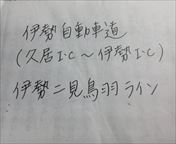 伊勢自動車道
(久居I・C〜伊勢I・C)
伊勢二見鳥羽ライン